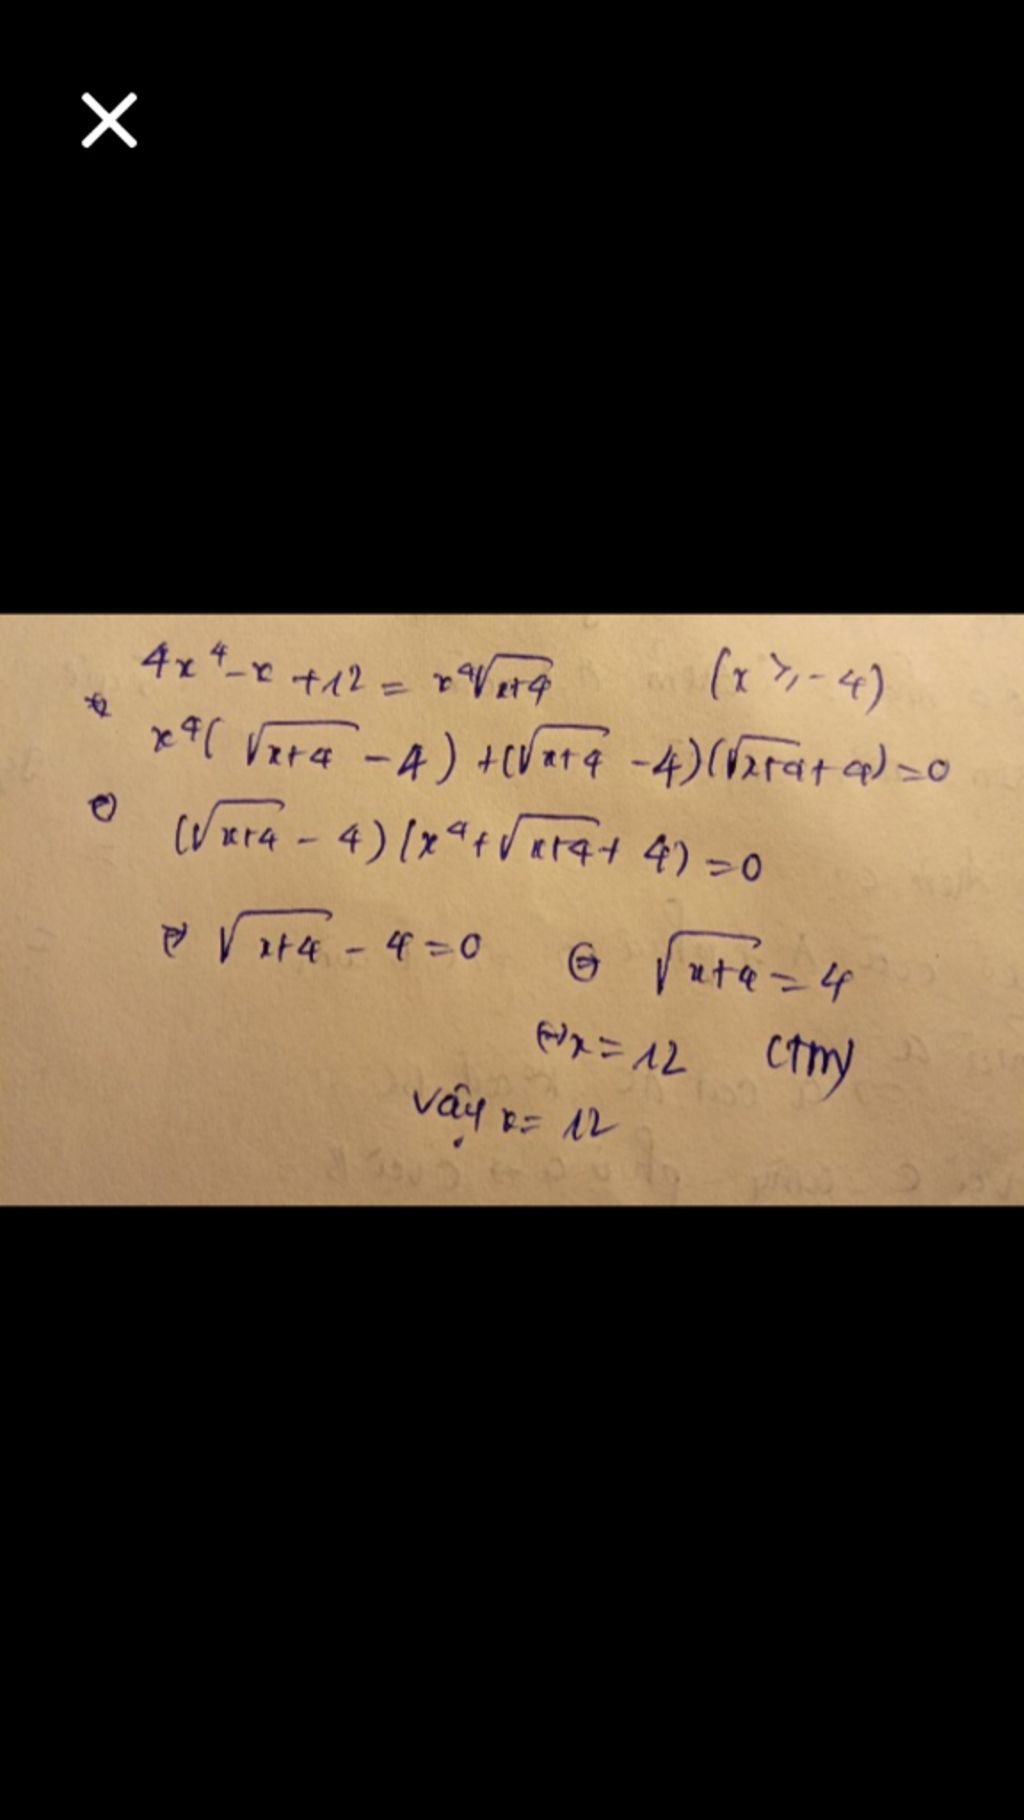 4x⁴ - x + 12 = x⁴√(x+4) (x ≥ -4)
x⁴(√(x+4) - 4) + (√(x+4) - 4)(√(x+4) + 4) = 0
(√(x+4) - 4)(x⁴ + √(x+4) + 4) = 0
⇔ √(x+4) - 4 = 0 ⇔ √(x+4) = 4
⇔ x = 12 (tm)
Vậy x = 12